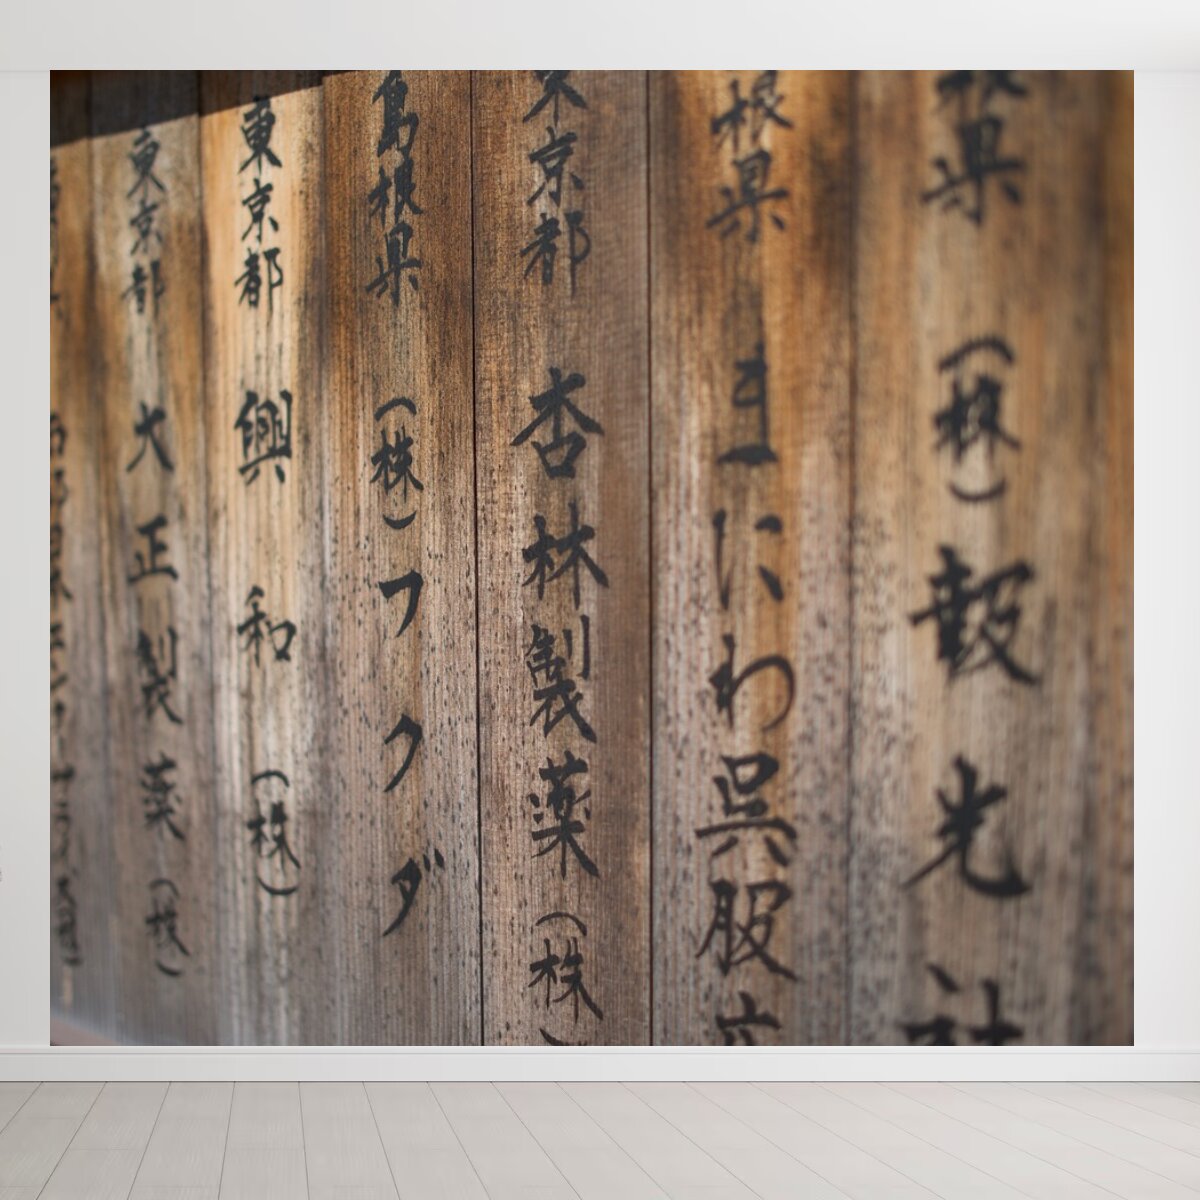 根県 （株）報光社
根県 まにわ呉服店
東京都 杏林製薬（株）
島根県 （株）フクダ
東京都 興和（株）
東京都 大正製薬（株）